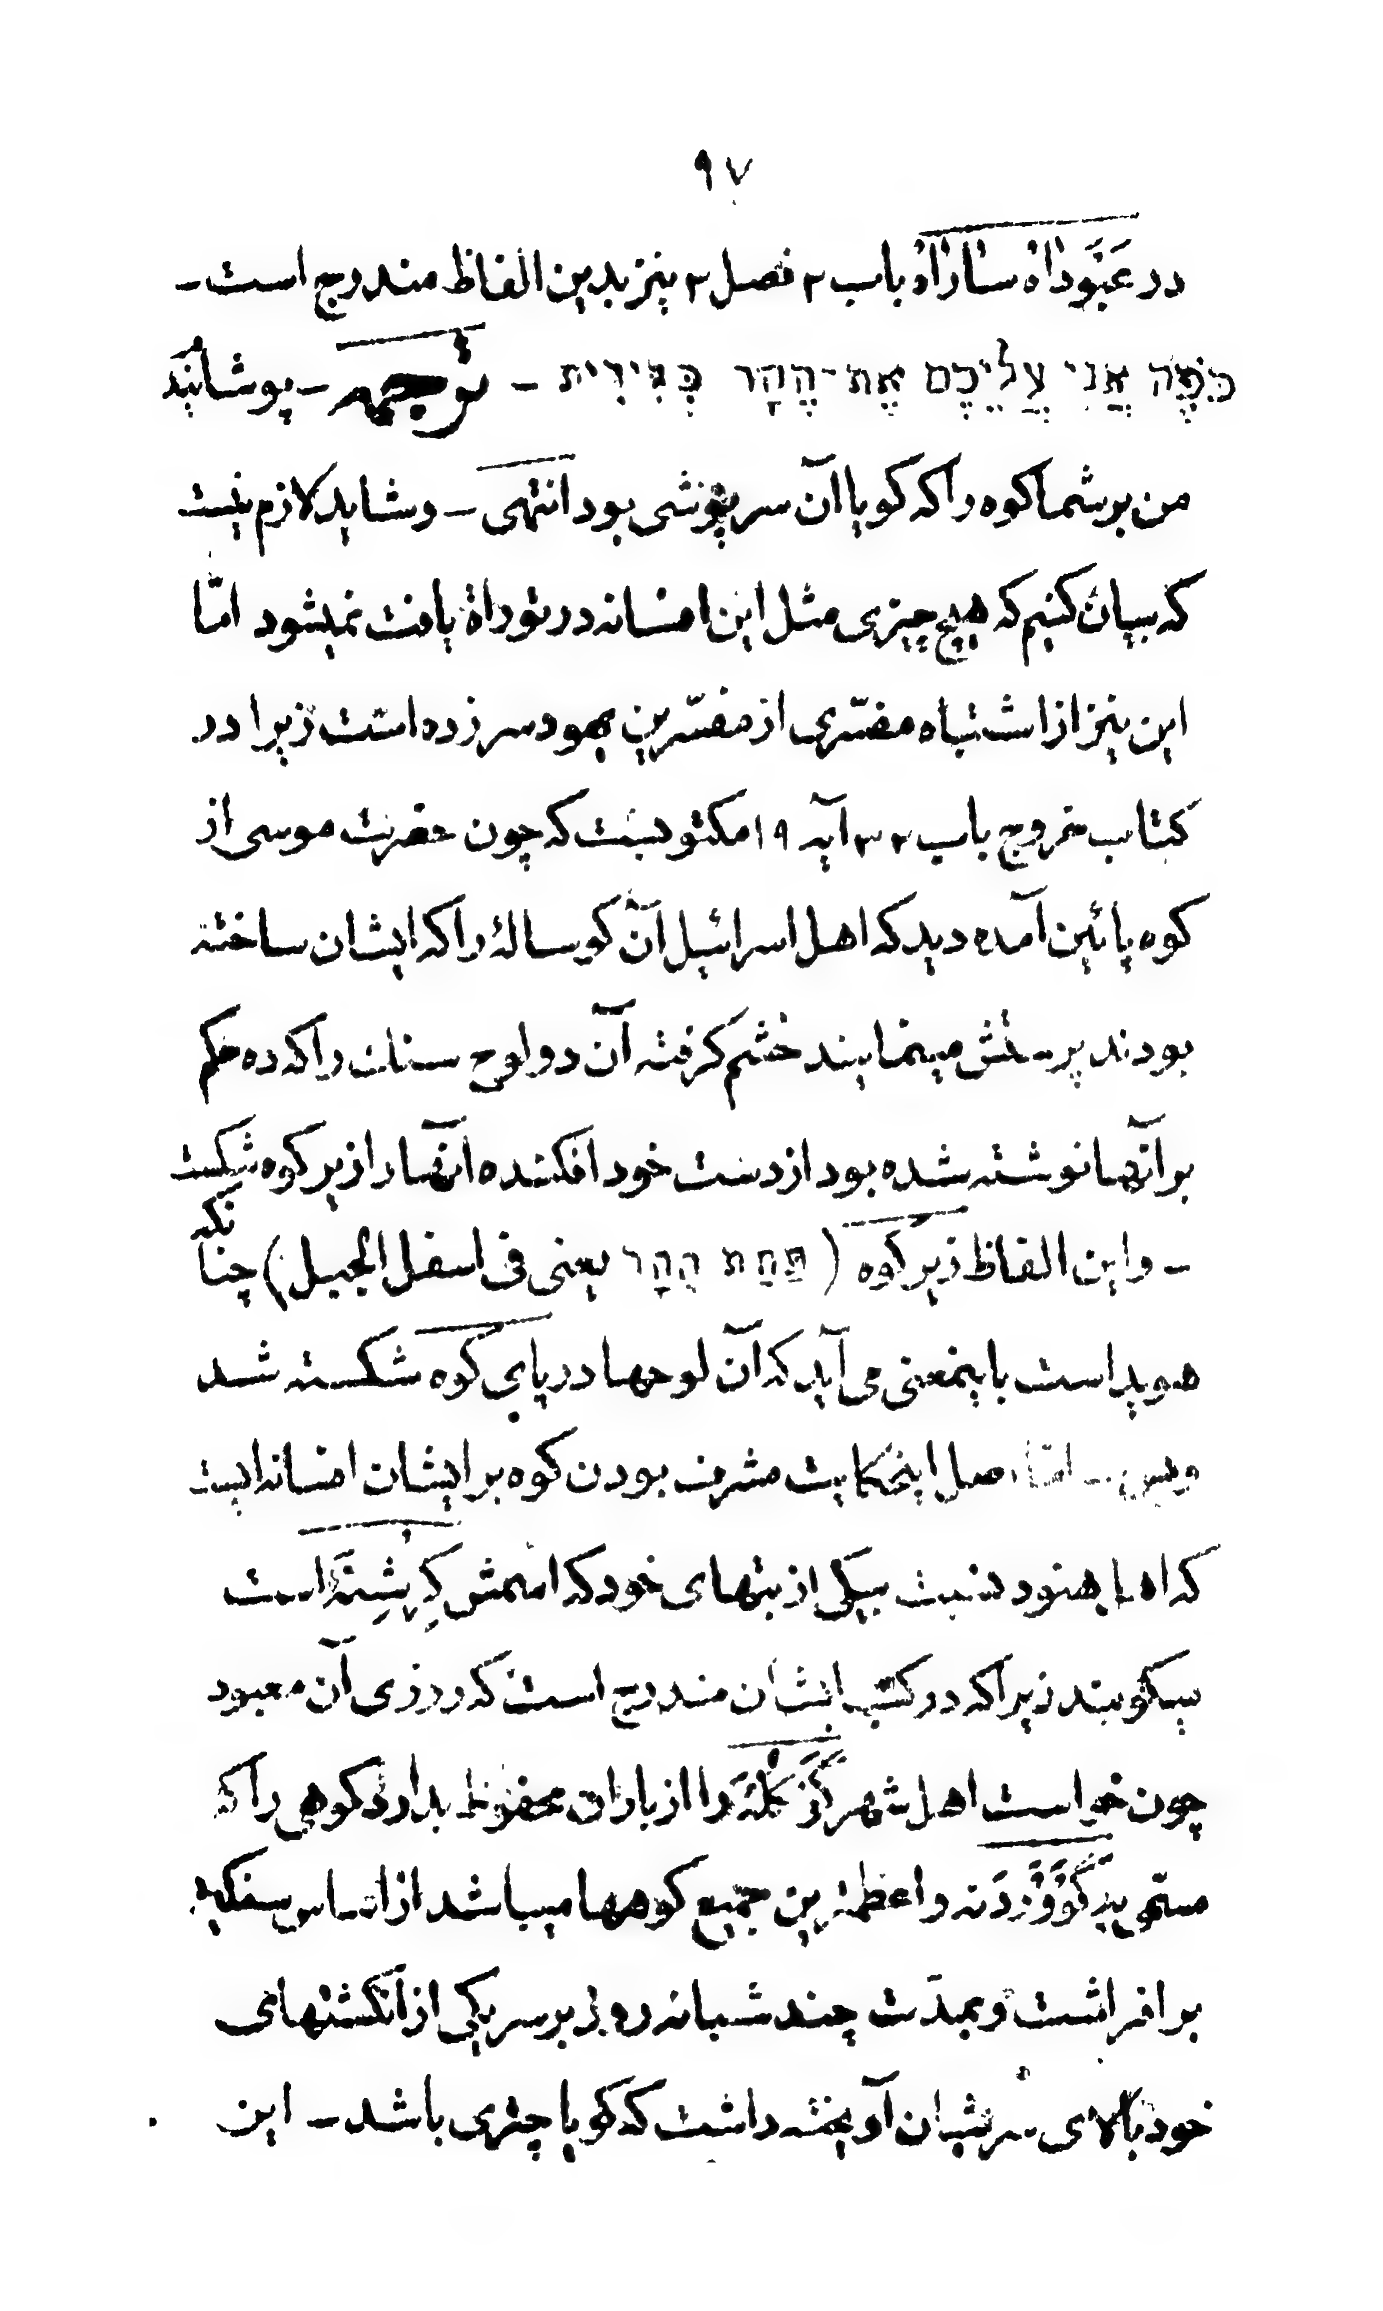 ۹۷
در عَبَّوداه ساراه باب ۲ فصل ۲ نیز بدین الفاظ مندرج است –
כִּפֶּה אֲנִי עֲלֵיכֶם אֶת־הֶהָר כְּגִיגִית – ترجمه – پوشانید
من بر شما کوه را که گویا آن سرپوشی بود انتهی – و شاید لازم نیست
که بیان کنیم که هیچ چیزی مثل این افسانه در توراة یافت نمیشود امّا
این نیز از اشتباه مفسّری از مفسّرین یهود سرزده است زیرا در
کتاب خروج باب ۳۲ آیه ۱۹ مکتوبست که چون حضرت موسی از
کوه پائین آمده دید که اهل اسرائیل آن گوسالهٔ را که ایشان ساخته
بودند پرستش مینمایند خشم گرفته آن دو لوح سنگ را که ده حکم
بر آنها نوشته شده بود از دست خود افکنده آنها را زیر کوه شکست
– و این الفاظ زیر کوه (תַּחַת הָהָר یعنی فی اسفل الجبل) چنانکه
هویداست باینمعنی می آید که آن لوحها در پای کوه شکسته شد
وبس – امّا اصل اینحکایت مشرف بودن کوه بر ایشان افسانه ایست
که اهل هنود نسبت بیکی از بتهای خود که اسمش کِرِشِنَه است
میگویند زیرا که در کتب ایشان مندرج است که روزی آن معبود
چون خواست اهل شهر گوکُلَه را از باران محفوظ بدارد کوهی را که
مسمّی به گَووَردَنه و اعظمترین جمیع کوهها میباشد از اساس سنگیه
برافراشت و بمدّت چند شبانه روز بر سر یکی از انگشتهای
خود بالای سرشان آویخته داشت که گویا چتری باشد – این